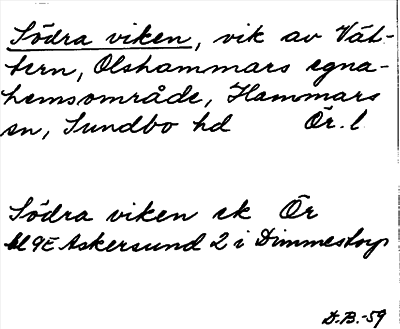 Södra viken, vik av Vät-
tern, Olshammars egna-
hemsområde, Hammars
sn, Sundbo hd Ör. l.
Södra viken ek Ör
bl 9E Askersund 2 i Dimmestorp
D.B.-59